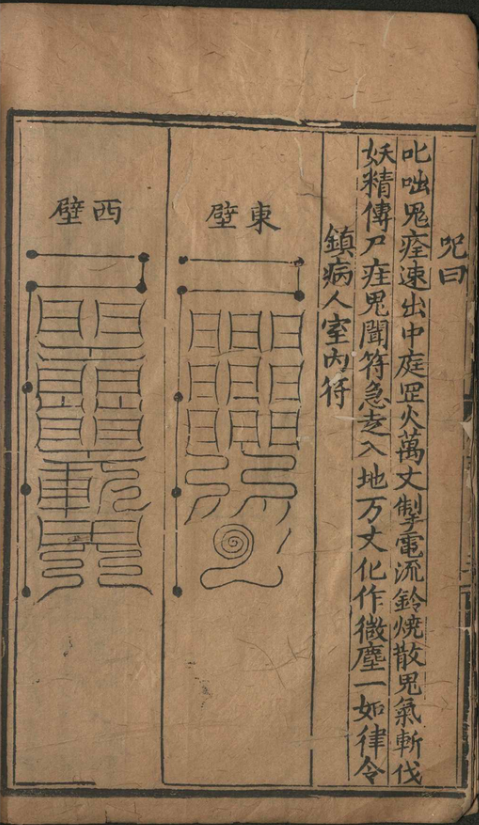 呪曰
叱咄鬼疰速出中庭罡火萬丈掣電流鈴燒散鬼氣斬伐
妖精傳尸疰鬼聞符急走入地万丈化作微塵一如律令
鎮病人室內符
東壁
西壁